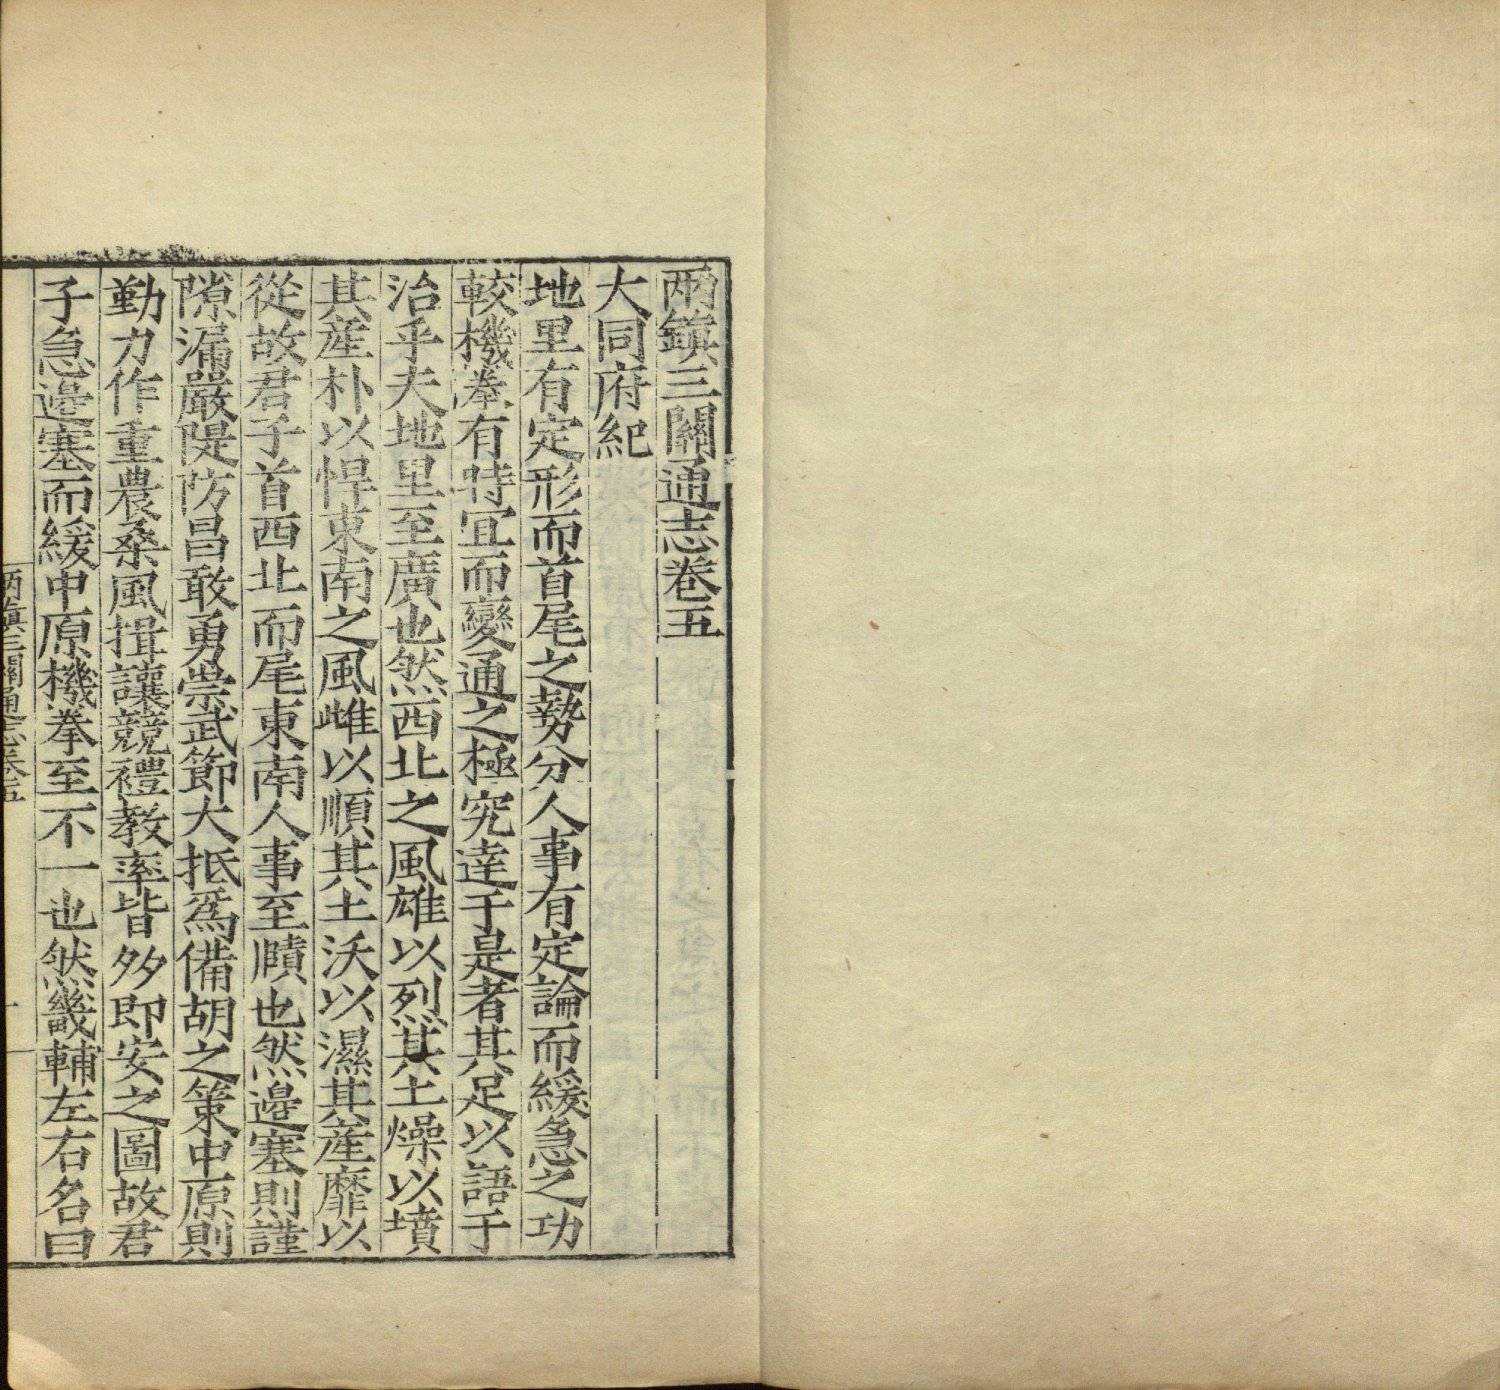 兩鎮三關通志卷五
大同府紀
地里有定形而首尾之勢分人事有定論而緩急之功
較機拳有時宜而變通之極究達于是者其足以語于
治乎夫地里至廣也然西北之風雄以烈其土燥以墳
其產朴以悍東南之風雌以順其土沃以濕其產靡以
從故君子首西北而尾東南人事至賾也然邊塞則謹
隙漏嚴隄防昌敢勇崇武節大抵爲備胡之策中原則
勤力作重農桑風揖讓競禮教率皆多即安之圖故君
子急邊塞而緩中原機拳至不一也然畿輔左右名曰
兩鎮三關通志卷五
一